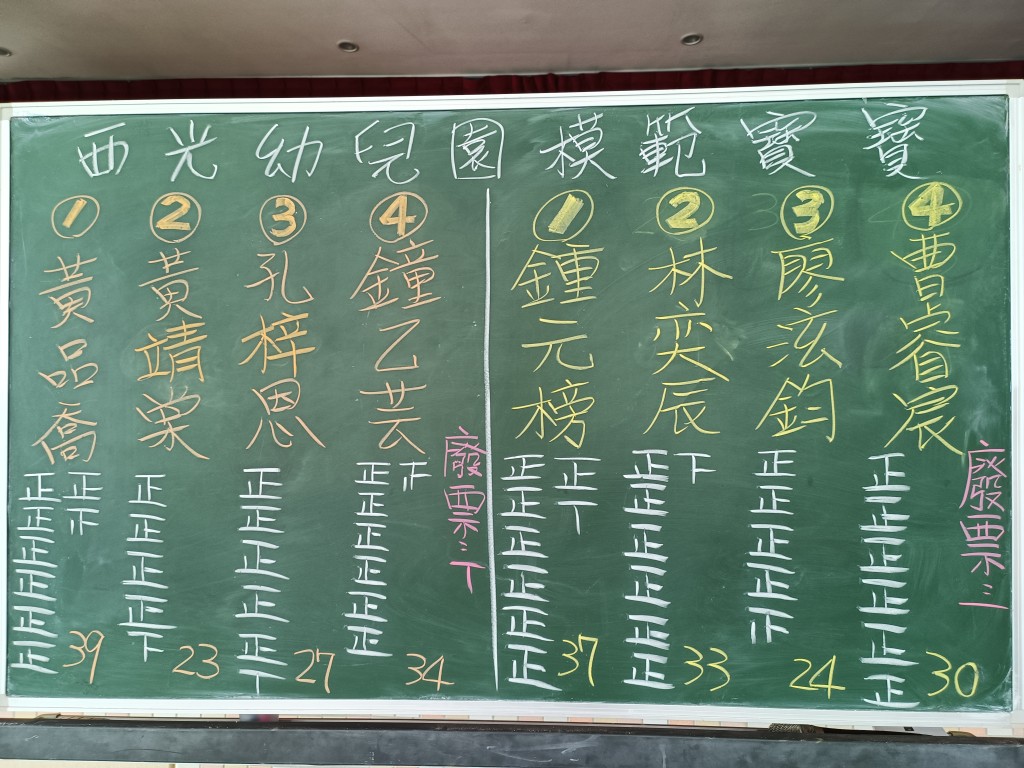 西光幼兒園模範寶寶
① 黃品喬
正正正正正正正正
39
② 黃靖棠
正正正正下
23
③ 孔梓恩
正正正正正丅
27
④ 鐘乙芸
正正正正正正
34
廢票:丅
① 鍾元榜
正正正正正正正丅
37
② 林奕辰
正正正正正正下
33
③ 廖泫鈞
正正正正
24
④ 曹睿宸
正正正正正正
30
廢票:一